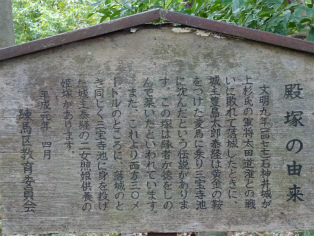 殿塚の由来
文明九年（一四七七）石神井城が
上杉氏の家将太田道灌との戦
いに敗れて落城したときに、
城主豊島太郎泰経は黄金の鞍
をつけた愛馬に乗り三宝寺池
に沈んだという伝説がありま
す。この塚は縁者が徳をしの
んで築いたといわれています。
また、これより西方三〇メ
ートルのところに、落城のと
き同じく三宝寺池に身を投げ
た城主泰経の二女照姫供養の
姫塚があります。
平成元年 四月
練馬区教育委員会